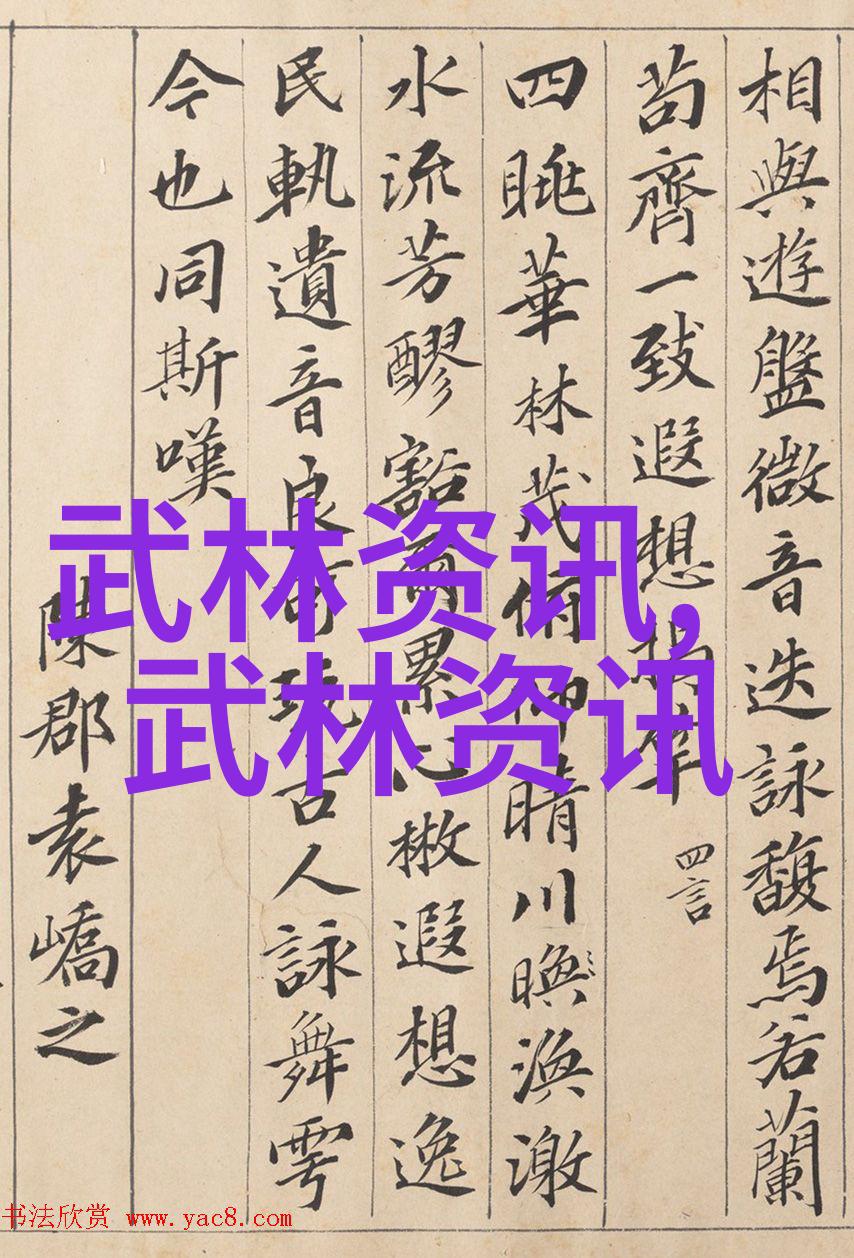 相與遊盤微音迭詠馥焉若蘭
苟齊一致遐想揭竿
四言
四眺華林茂俯仰晴川渙激
水流芳醪豁爾累心遐想逸
民軌遺音良可玩古人詠舞雩
今也同斯嘆
陳郡袁嶠之
武林资讯,
武林资讯
书法欣赏 www.yac8.com